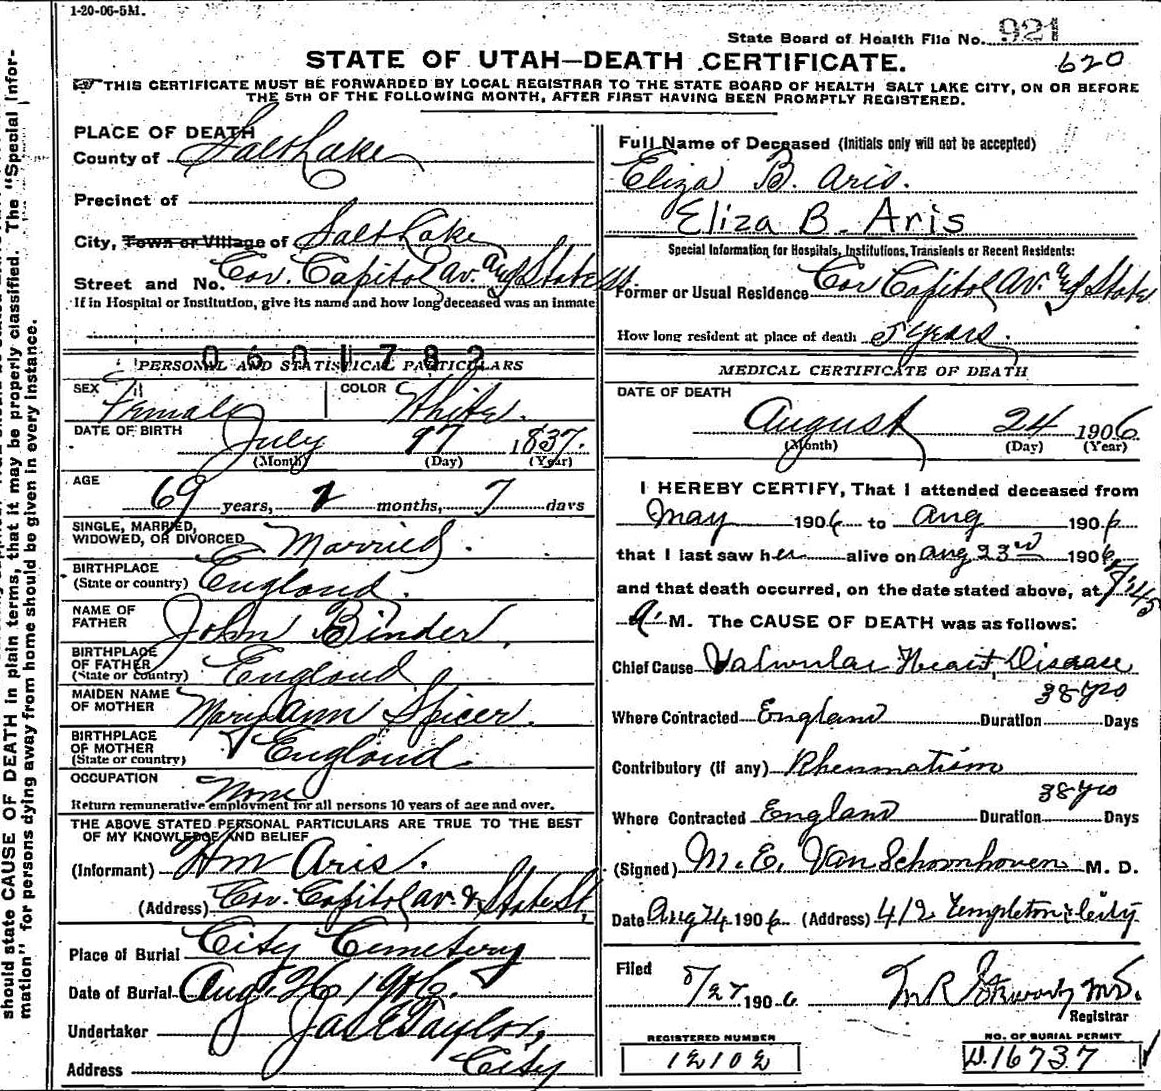 1-20-06-5M.
State Board of Health File No. 921
STATE OF UTAH—DEATH CERTIFICATE.
620
THIS CERTIFICATE MUST BE FORWARDED BY LOCAL REGISTRAR TO THE STATE BOARD OF HEALTH SALT LAKE CITY, ON OR BEFORE
THE 5TH OF THE FOLLOWING MONTH, AFTER FIRST HAVING BEEN PROMPTLY REGISTERED.
should state CAUSE OF DEATH in plain terms, that it may be properly classified. The "Special Infor-
mation" for persons dying away from home should be given in every instance.
PLACE OF DEATH
County of Salt Lake
Precinct of
City, Town or Village of Salt Lake
Street and No. Cor. Capitol Av. and State St.
If in Hospital or Institution, give its name and how long deceased was an inmate
0601782
PERSONAL AND STATISTICAL PARTICULARS
SEX Female COLOR White.
DATE OF BIRTH July 17 1837.
(Month) (Day) (Year)
AGE 69 years, 1 months, 7 days
SINGLE, MARRIED,
WIDOWED, OR DIVORCED Married.
BIRTHPLACE
(State or country) England.
NAME OF
FATHER John Binder,
BIRTHPLACE
OF FATHER
(State or country) England
MAIDEN NAME
OF MOTHER Mary Ann Spicer.
BIRTHPLACE
OF MOTHER
(State or country) England.
OCCUPATION None
Return remunerative employment for all persons 10 years of age and over.
THE ABOVE STATED PERSONAL PARTICULARS ARE TRUE TO THE BEST
OF MY KNOWLEDGE AND BELIEF
(Informant) Wm Aris.
(Address) Cor. Capitol av. & State St.
Place of Burial City Cemetery
Date of Burial Aug. 26 1906.
Undertaker Jas E Taylor,
Address City
Full Name of Deceased (Initials only will not be accepted)
Eliza B. Aris.
Eliza B. Aris
Special Information for Hospitals, Institutions, Transients or Recent Residents:
Former or Usual Residence Cor Capitol Av. and State
How long resident at place of death 5 years.
MEDICAL CERTIFICATE OF DEATH
DATE OF DEATH
August 24 1906
(Month) (Day) (Year)
I HEREBY CERTIFY, That I attended deceased from
May 1906 to Aug 1906
that I last saw her alive on Aug 23rd 1906,
and that death occurred, on the date stated above, at 7:45
a. M. The CAUSE OF DEATH was as follows:
Chief Cause Valvular Heart Disease
Where Contracted England Duration 38 yrs Days
Contributory (if any) Rheumatism
Where Contracted England Duration 38 yrs Days
(Signed) M. E. Van Schoonhoven M. D.
Date Aug 24 1906 (Address) 412 Templeton City
Filed 8/27 1906 M.D.
Registrar
REGISTERED NUMBER
12102
NO. OF BURIAL PERMIT
D.16737